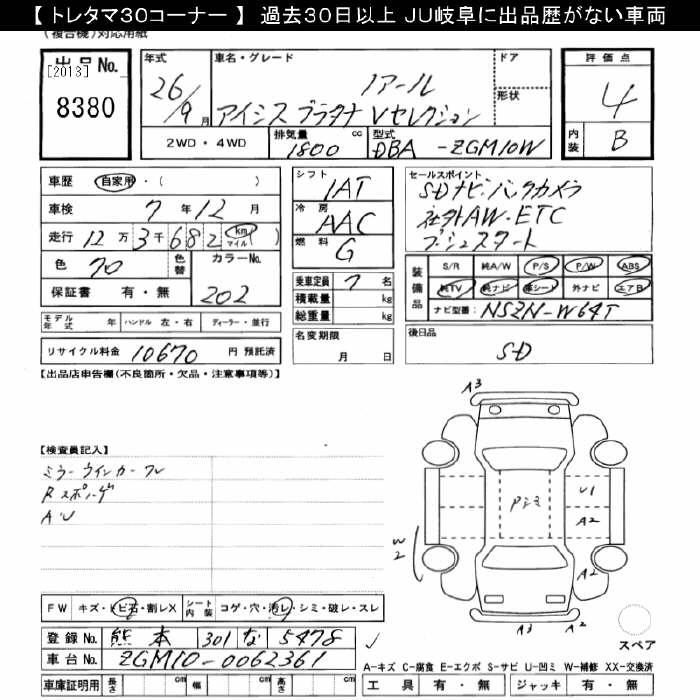 【 トレタマ30コーナー 】 過去30日以上 JU岐阜に出品歴がない車両
(複合機)対応用紙
出品No.
[2013]
8380
年式
26/9月
車名・グレード
ノアール
アイシス プラタナ Vセレクション
ドア
形状
評価点
4
内装
B
2WD・4WD
排気量
1800
cc
型式
DBA -ZGM10W
車歴 自家用・( )
車検 7年12月
走行 12万3千682 km マイル ( )
色 クロ 色替 カラーNo.
保証書 有・無 202
シフト
IAT
冷房
AAC
燃料
G
乗車定員 7名
積載量 kg
総重量 kg
セールスポイント
SDナビ・バックカメラ
社外AW・ETC
プシュスタート
装備品
S/R 純A/W P/S P/W ABS
純TV 純ナビ 革シート 外ナビ エアB
ナビ型番: NSZN-W64T
モデル年式 年 ハンドル 左・右 ディーラー・並行
リサイクル料金 10670 円 預託済
名変期限
月 日
後日品
SD
【出品店申告欄(不良箇所・欠品・注意事項等)】
【検査員記入】
ミラーウインカーワレ
A U
A3
Pシミ
U1
A2
W2
A2
A3
A2
FW キズ・トビ石・割レX シート内装 コゲ・穴・汚レ・シミ・破レ・スレ
登録No. 熊本 301 な 5478
車台No. ZGM10-0062361
スペア
A-キズ C-腐食 E-エクボ S-サビ U-凹ミ W-補修 XX-交換済
車庫証明用 長さ cm 幅 cm 高さ cm
工具 有・無 ジャッキ 有・無